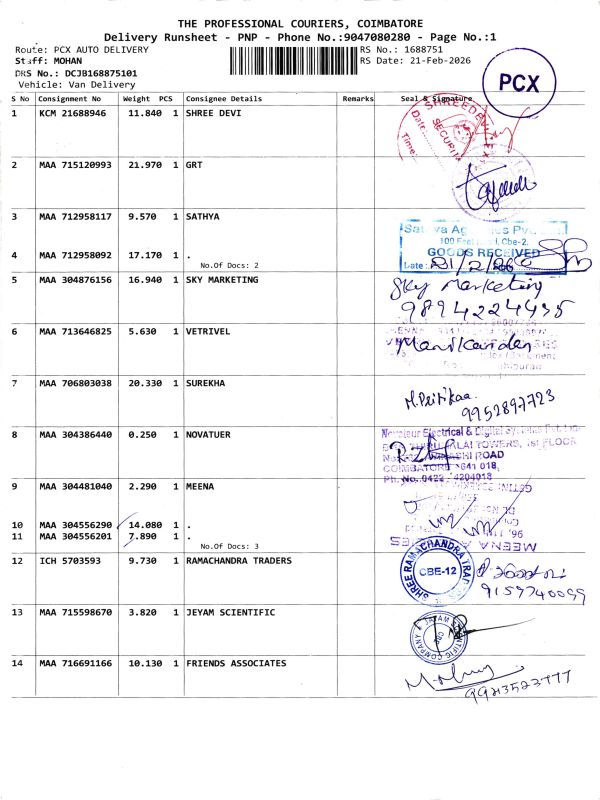 THE PROFESSIONAL COURIERS, COIMBATORE
Delivery Runsheet - PNP - Phone No.:9047080280 - Page No.:1
Route: PCX AUTO DELIVERY
RS No.: 1688751
Staff: MOHAN
RS Date: 21-Feb-2026
DRS No.: DCJB168875101
Vehicle: Van Delivery
PCX
S No Consignment No Weight PCS Consignee Details Remarks Seal & Signature
1 KCM 21688946 11.840 1 SHREE DEVI
SHREEDEVI
Date:
SECURITY
Time:
2 MAA 715120993 21.970 1 GRT
3 MAA 712958117 9.570 1 SATHYA
Sathya Agencies Pvt.
100 Feet Road, Cbe-2.
GOODS RECEIVED
4 MAA 712958092 17.170 1 .
No.Of Docs: 2
Date: 21/2/26
5 MAA 304876156 16.940 1 SKY MARKETING
Sky Marketing
9894224435
6 MAA 713646825 5.630 1 VETRIVEL
Manikandan
7 MAA 706803038 20.330 1 SUREKHA
9952897723
8 MAA 304386440 0.250 1 NOVATUER
Novateur Electrical & Digital Systems Pvt Ltd
TOWERS, 1st FLOOR
ROAD
COIMBATORE - 641 018.
Ph.No:0422 - 4204018
9 MAA 304481040 2.290 1 MEENA
10 MAA 304556290 14.080 1 .
11 MAA 304556201 7.890 1 .
No.Of Docs: 3
MEENA AGENCIES
12 ICH 5703593 9.730 1 RAMACHANDRA TRADERS
SHREE RAMACHANDRA TRADERS
CBE-12
9159740099
13 MAA 715598670 3.820 1 JEYAM SCIENTIFIC
14 MAA 716691166 10.130 1 FRIENDS ASSOCIATES
9943523777